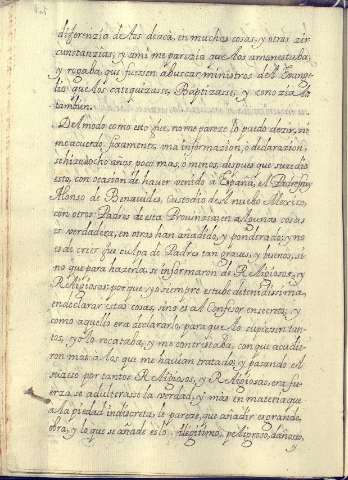 diferenzia de los deacà, en muchas cosas, y otras zir
cunstanzias, y ami me parezia que los amonestaba,
y rogaba, que fuesen abuscar ministros del Evange
lio que los catequizase, Baptizase, y conozialo
tambien.
Del modo como esto fue, no me pareze lo puedo dezir, ni
me acuerdo fixamente, vna informazion, ò declarazion,
se hizo ocho años, poco mas, ò menos, despues que suzediò
esto, con ocasion de haver venido à España, el Padre fray
Alonso de Benauides, Custodio del nuebo Mexico,
con otros Padres de esta Prouinzia, en algunas cosas
es verdadera, en otras han añadido, y ponderado, y no
es de creer fue culpa de Padres tan graues, y buenos, si
no que para hazerlo, se informaron de Religiosos, y
Religiosas, porque yo siempre estube detenidissima,
en declarar estas cosas, sino es al Confesor en secreto, y
como aquello era declararlo, para que lo supiesen tan
tos, yo lo rocataba, y me contristaba, con que acudie
ron mas a los que me havian tratado, y pasando el
suzeso por tantos Religiosos, y Religiosas, era fu
erza, se adulterase la verdad, y mas en materia que
a la piedad indiscreta, le pareze, que añadir es grande
obra, y lo que se añade es lo illegitimo, peligroso, dañoso, y